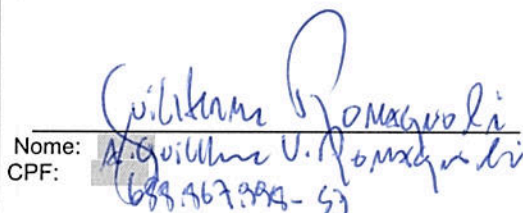 Guilherme Romagnoli
Nome: A. Guilherme V. Romagnoli
CPF: 688.867.998-57